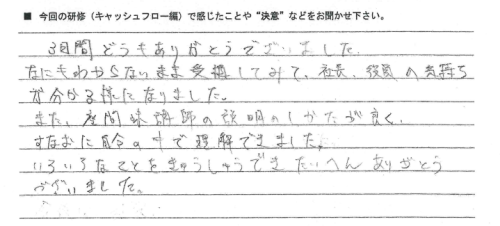 ■ 今回の研修（キャッシュフロー編）で感じたことや“決意”などをお聞かせ下さい。
3日間どうもありがとうございました。
なにもわからないまま受講してみて、社長、役員の気持ち
が分かる様になりました。
また、座間味講師の説明のしかたが良く、
すなおに自分の中で理解できました。
いろいろなことをきゅうしゅうできたいへんありがとう
ございました。